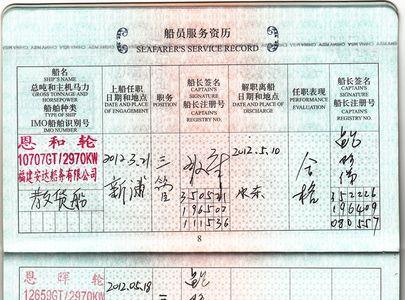 船员服务资历
SEAFARER'S SERVICE RECORD
船名
SHIP'S NAME
总吨和主机马力
GROSS TONNAGE AND HORSEPOWER
船舶种类
TYPE OF SHIP
IMO船舶识别号
IMO NUMBER
上船任职日期和地点
DATE AND PLACE OF ENGAGEMENT
职务
POSITION
船长签名
CAPTAIN'S SIGNATURE
船长注册号
CAPTAIN'S REGISTRY NO.
解职离船日期和地点
DATE AND PLACE OF DISCHARGE
任职表现
PERFORMANCE EVALUATION
船长签名
CAPTAIN'S SIGNATURE
船长注册号
CAPTAIN'S REGISTRY NO.
恩和轮
10707GT/2970KW
福建安达船务有限公司
散货船
2012.3.21
新浦
三管
350521
196502
111536
2012.5.10
合格
352226
196409
080557
8
恩晖轮
12659GT/2970KW
2012.05.18
三